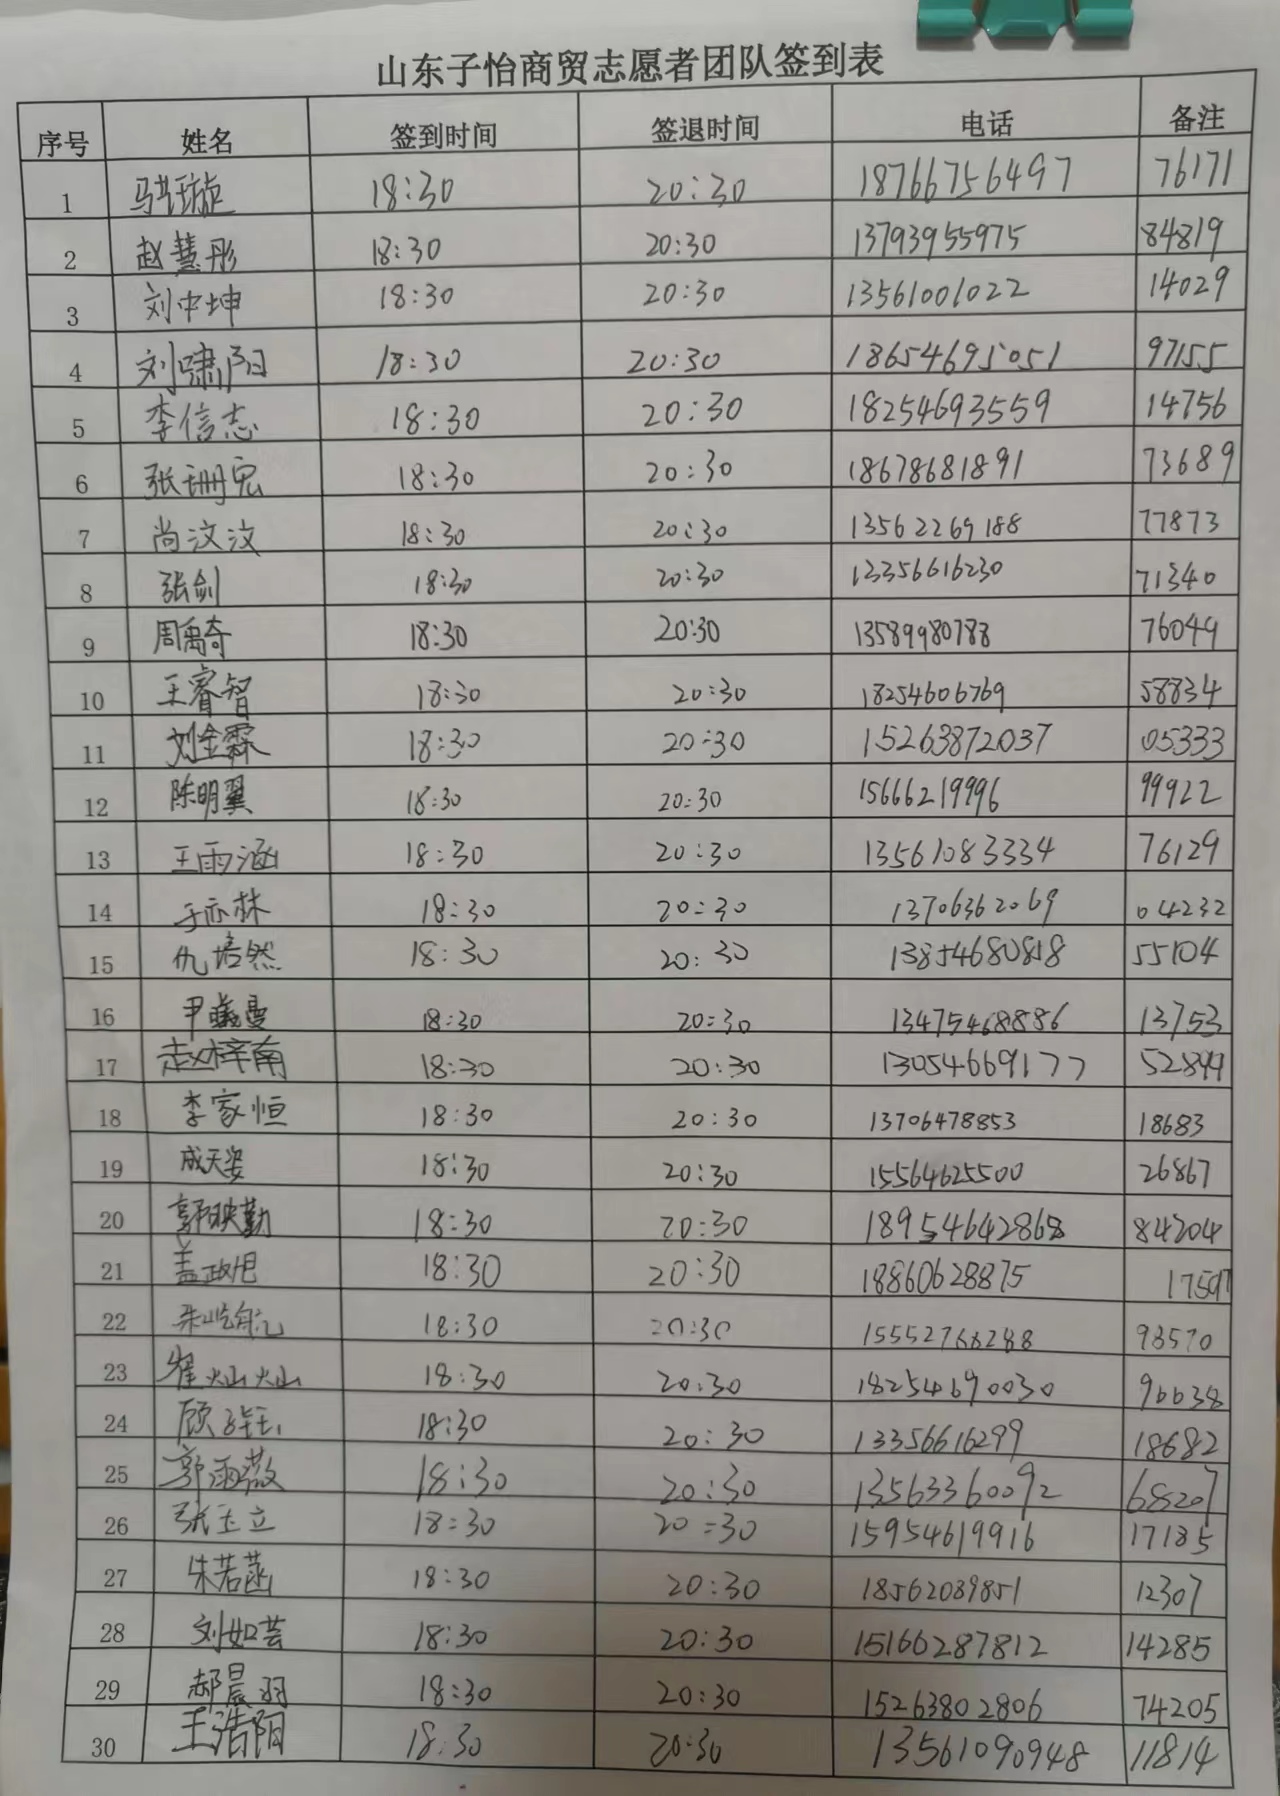 山东子怡商贸志愿者团队签到表
序号 姓名 签到时间 签退时间 电话 备注
1 马艺璇 18:30 20:30 18766756497 76171
2 赵慧彤 18:30 20:30 13793955975 84819
3 刘中坤 18:30 20:30 13561001022 14029
4 刘啸阳 18:30 20:30 18654695051 97155
5 李信志 18:30 20:30 18254693559 14756
6 张珊宏 18:30 20:30 18678681891 73689
7 尚汶汶 18:30 20:30 13562269188 77873
8 张剑 18:30 20:30 13356616230 71340
9 周禹奇 18:30 20:30 13589980788 76049
10 王睿智 18:30 20:30 18254606769 58834
11 刘金霖 18:30 20:30 15263872037 05333
12 陈明翼 18:30 20:30 15666219996 99922
13 王雨涵 18:30 20:30 13561083334 76129
14 于亦林 18:30 20:30 13706362069 04232
15 仇培然 18:30 20:30 13854680818 55104
16 尹曦曼 18:30 20:30 13475468886 13753
17 赵梓南 18:30 20:30 13054669177 52899
18 李家恒 18:30 20:30 13706478853 18683
19 成天姿 18:30 20:30 15564625500 26867
20 郭映勤 18:30 20:30 18954642868 84204
21 盖政旭 18:30 20:30 18860628875 17597
22 朱屹航 18:30 20:30 15552766288 93570
23 崔灿灿 18:30 20:30 18254690030 96638
24 顾 18:30 20:30 13356616299 18682
25 郭雨薇 18:30 20:30 13563360092 68207
26 张玉立 18:30 20:30 15954619916 17185
27 朱若菡 18:30 20:30 18562089851 12307
28 刘如芸 18:30 20:30 15166287812 14285
29 郝晨羽 18:30 20:30 15263802806 74205
30 王浩阳 18:30 20:30 13561090948 11814